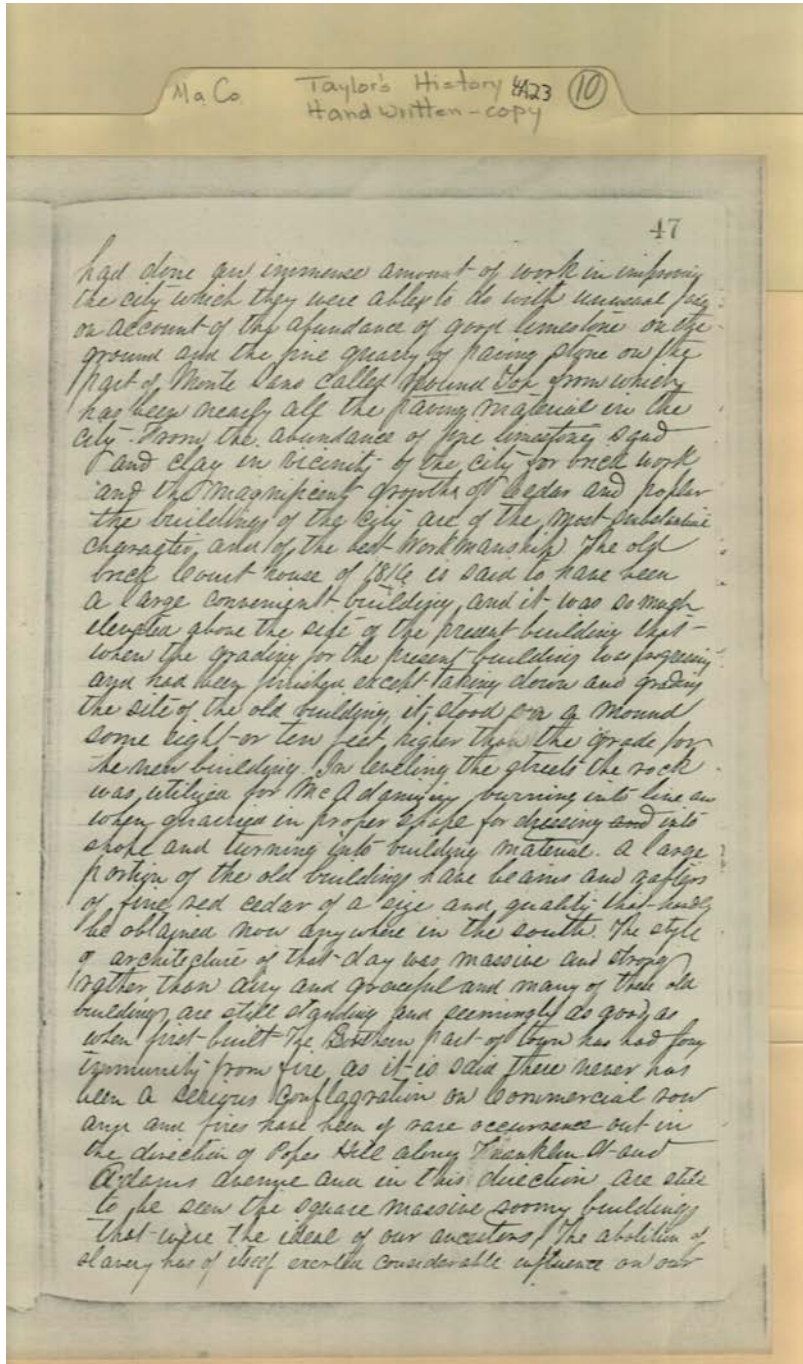 Ma. Co. Taylor's History 4A23 10
Handwritten-copy
47
had done an immense amount of work in improving
the city which they were able to do with unusual
on account of the abundance of good limestone on the
ground and the fine quarry of paving stone on the
part of Monte Sano called Round Top from which
has been nearly all the paving material in the
city. From the abundance of fine limestone sand
and clay in vicinity of the city for brick work
and the magnificent growths of cedar and poplar
the buildings of the city are of the most substantial
character and of the best workmanship. The old
brick Court house of 1816 is said to have been
a large convenient building, and it was so much
elevated above the site of the present building that
when the grading for the present building was progressing
and had been finished except taking down and grading
the site of the old building, it stood on a mound
some eight or ten feet higher than the grade for
he new building. In leveling the streets the rock
was utilized for McAdamizing, burning into lime an
when quarried in proper shape for dressing and into
shape and turning into building material. A large
portion of the old buildings have beams and
of fine red cedar of a size and quality that
be obtained now anywhere in the south. The style
of architecture of that day was massive and strong
rather than airy and graceful and many of these old
buildings are still standing and seemingly as good as
when first built. The part of town has had
immunity from fire, as it is said there never has
been a serious conflagration on Commercial row
and fires have been of rare occurrence out in
the direction of Popes Hill along Franklin St and
Adams avenue and in this direction are still
to be seen the square massive roomy buildings
that were the ideal of our ancestors. The abolition of
slavery has of itself exerted considerable influence on our